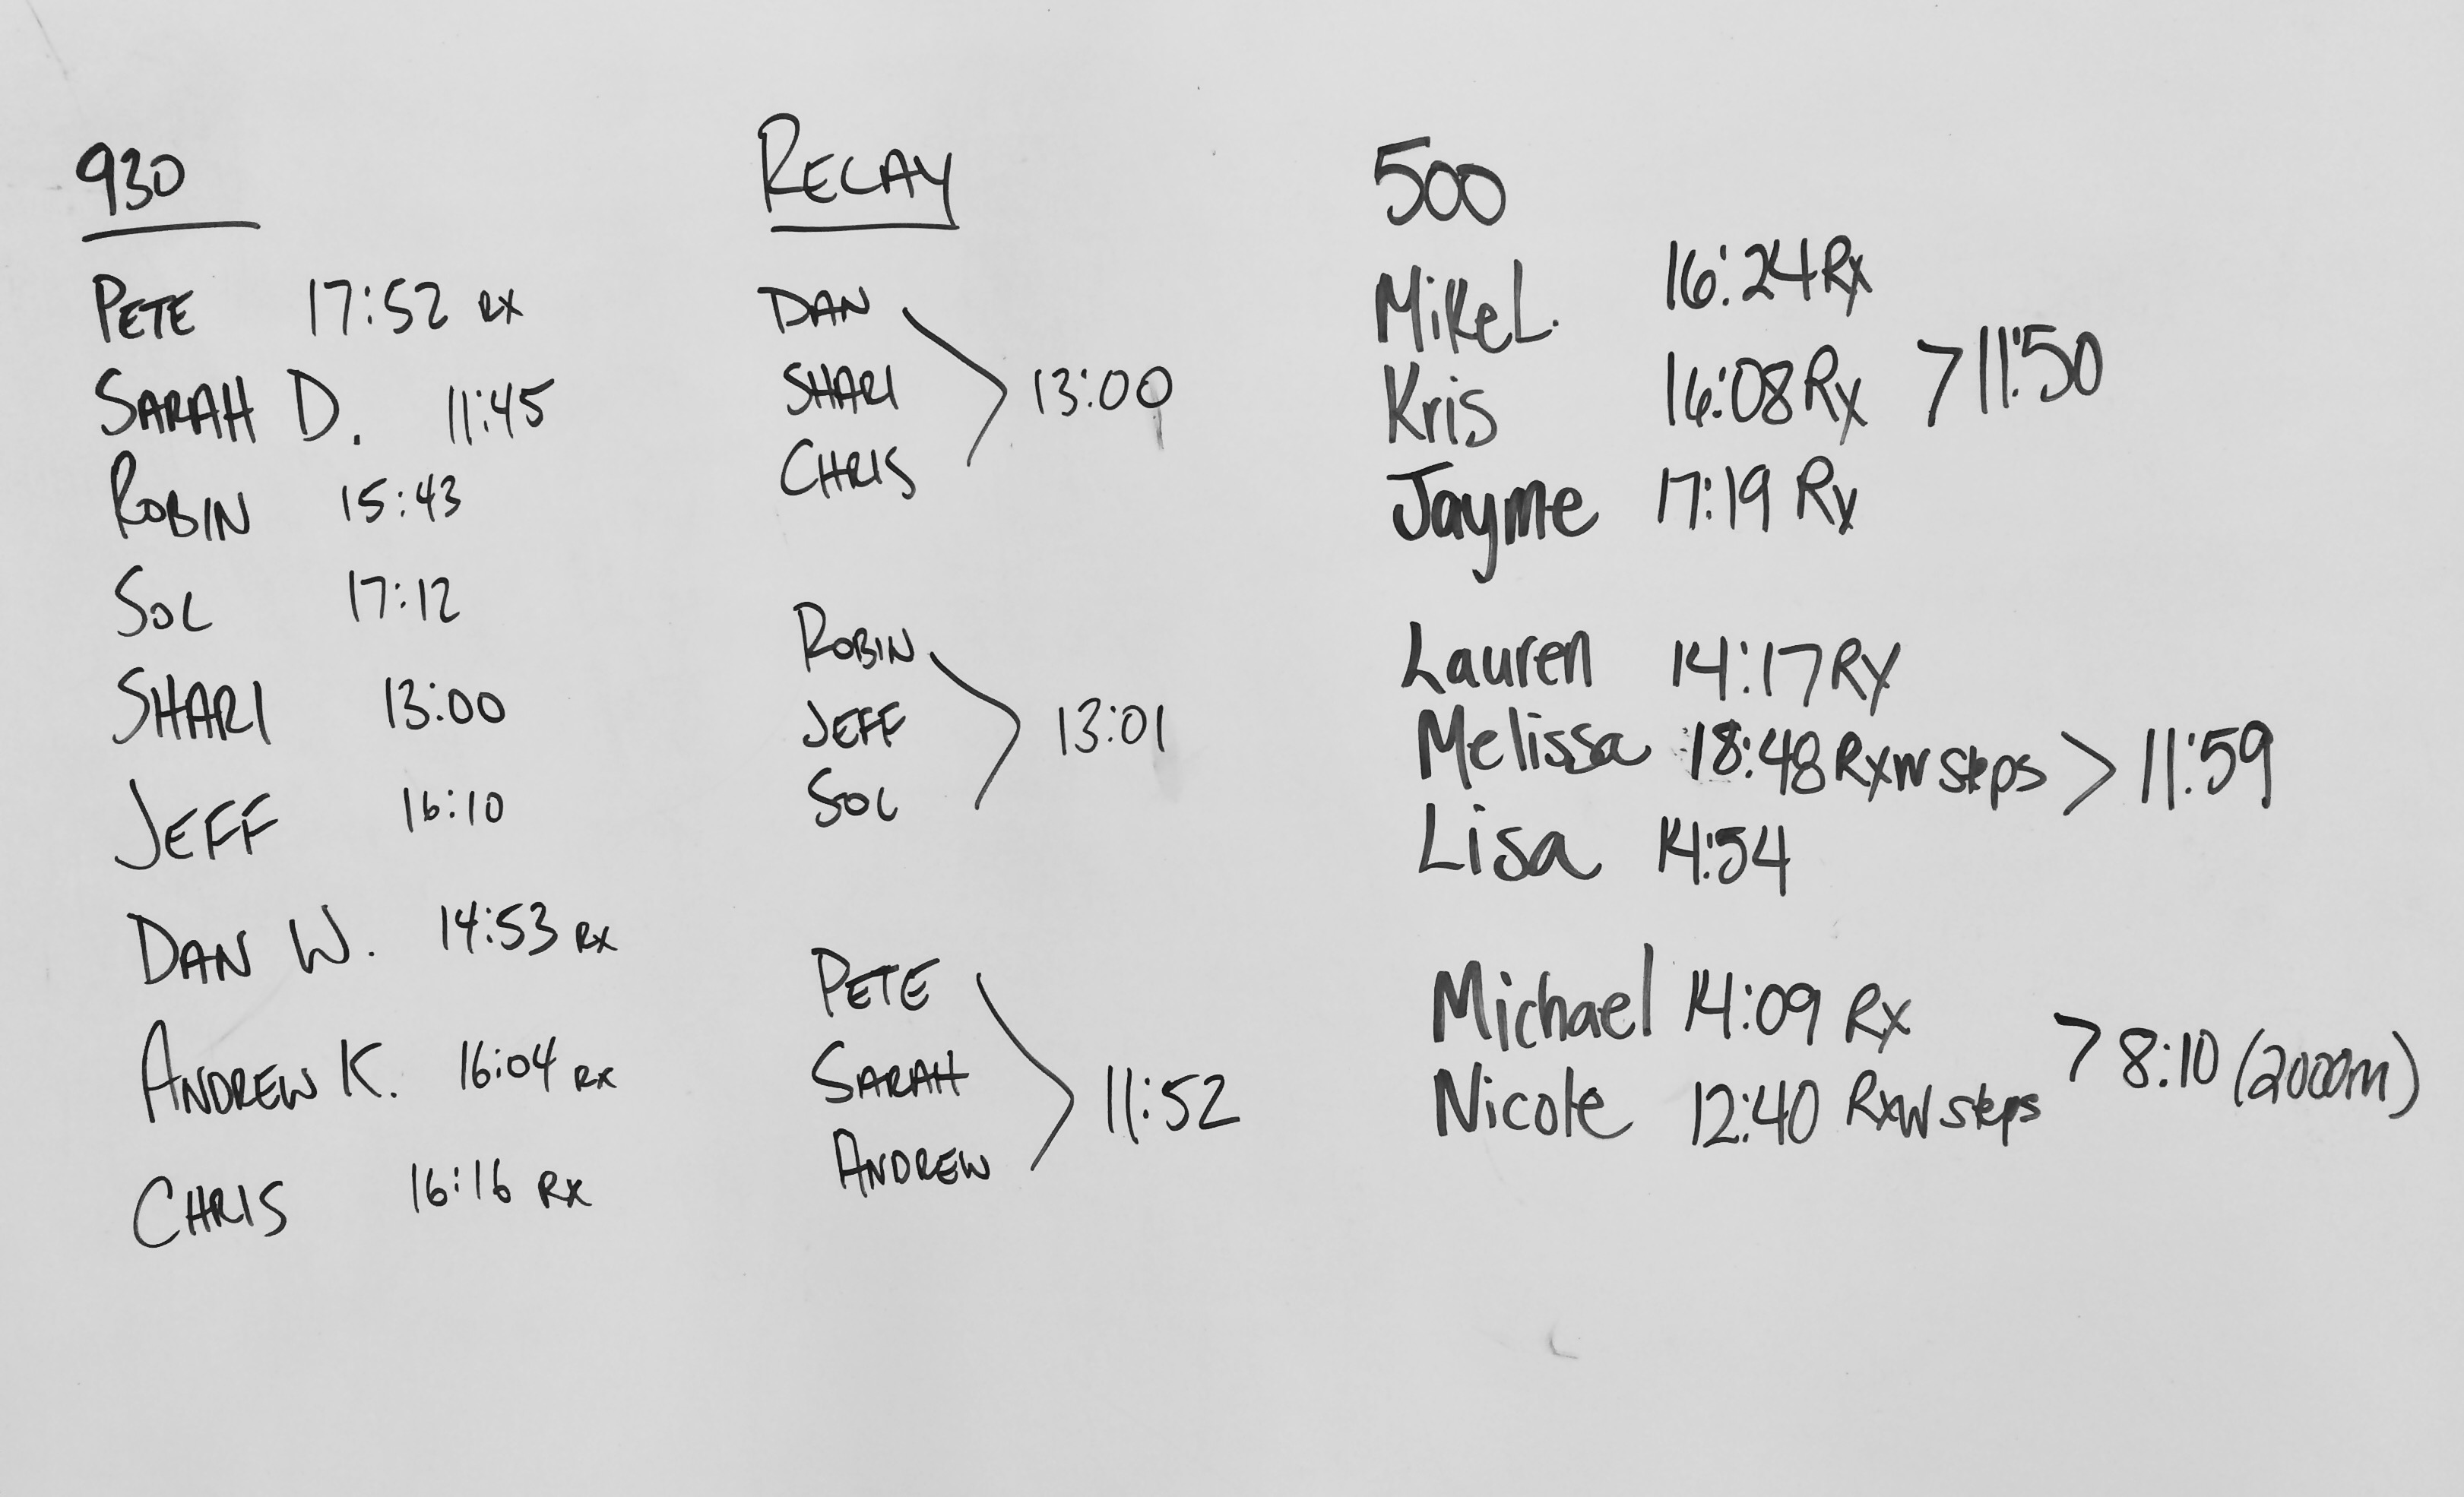 930
PETE 17:52 RX
SARAH D. 11:45
ROBIN 15:43
SOL 17:12
SHARI 13:00
JEFF 16:10
DAN W. 14:53 RX
ANDREW K. 16:04 RX
CHRIS 16:16 RX
RELAY
DAN
SHARI
CHRIS
13:00
ROBIN
JEFF
SOL
13:01
PETE
SARAH
ANDREW
11:52
500
Mike L. 16:24 Rx
Kris 16:08 Rx > 11:50
Jayme 17:19 Rx
Lauren 14:17 Rx
Melissa 18:48 Rx w steps > 11:59
Lisa 14:54
Michael 14:09 Rx
Nicole 12:40 Rx w steps > 8:10 (2000m)